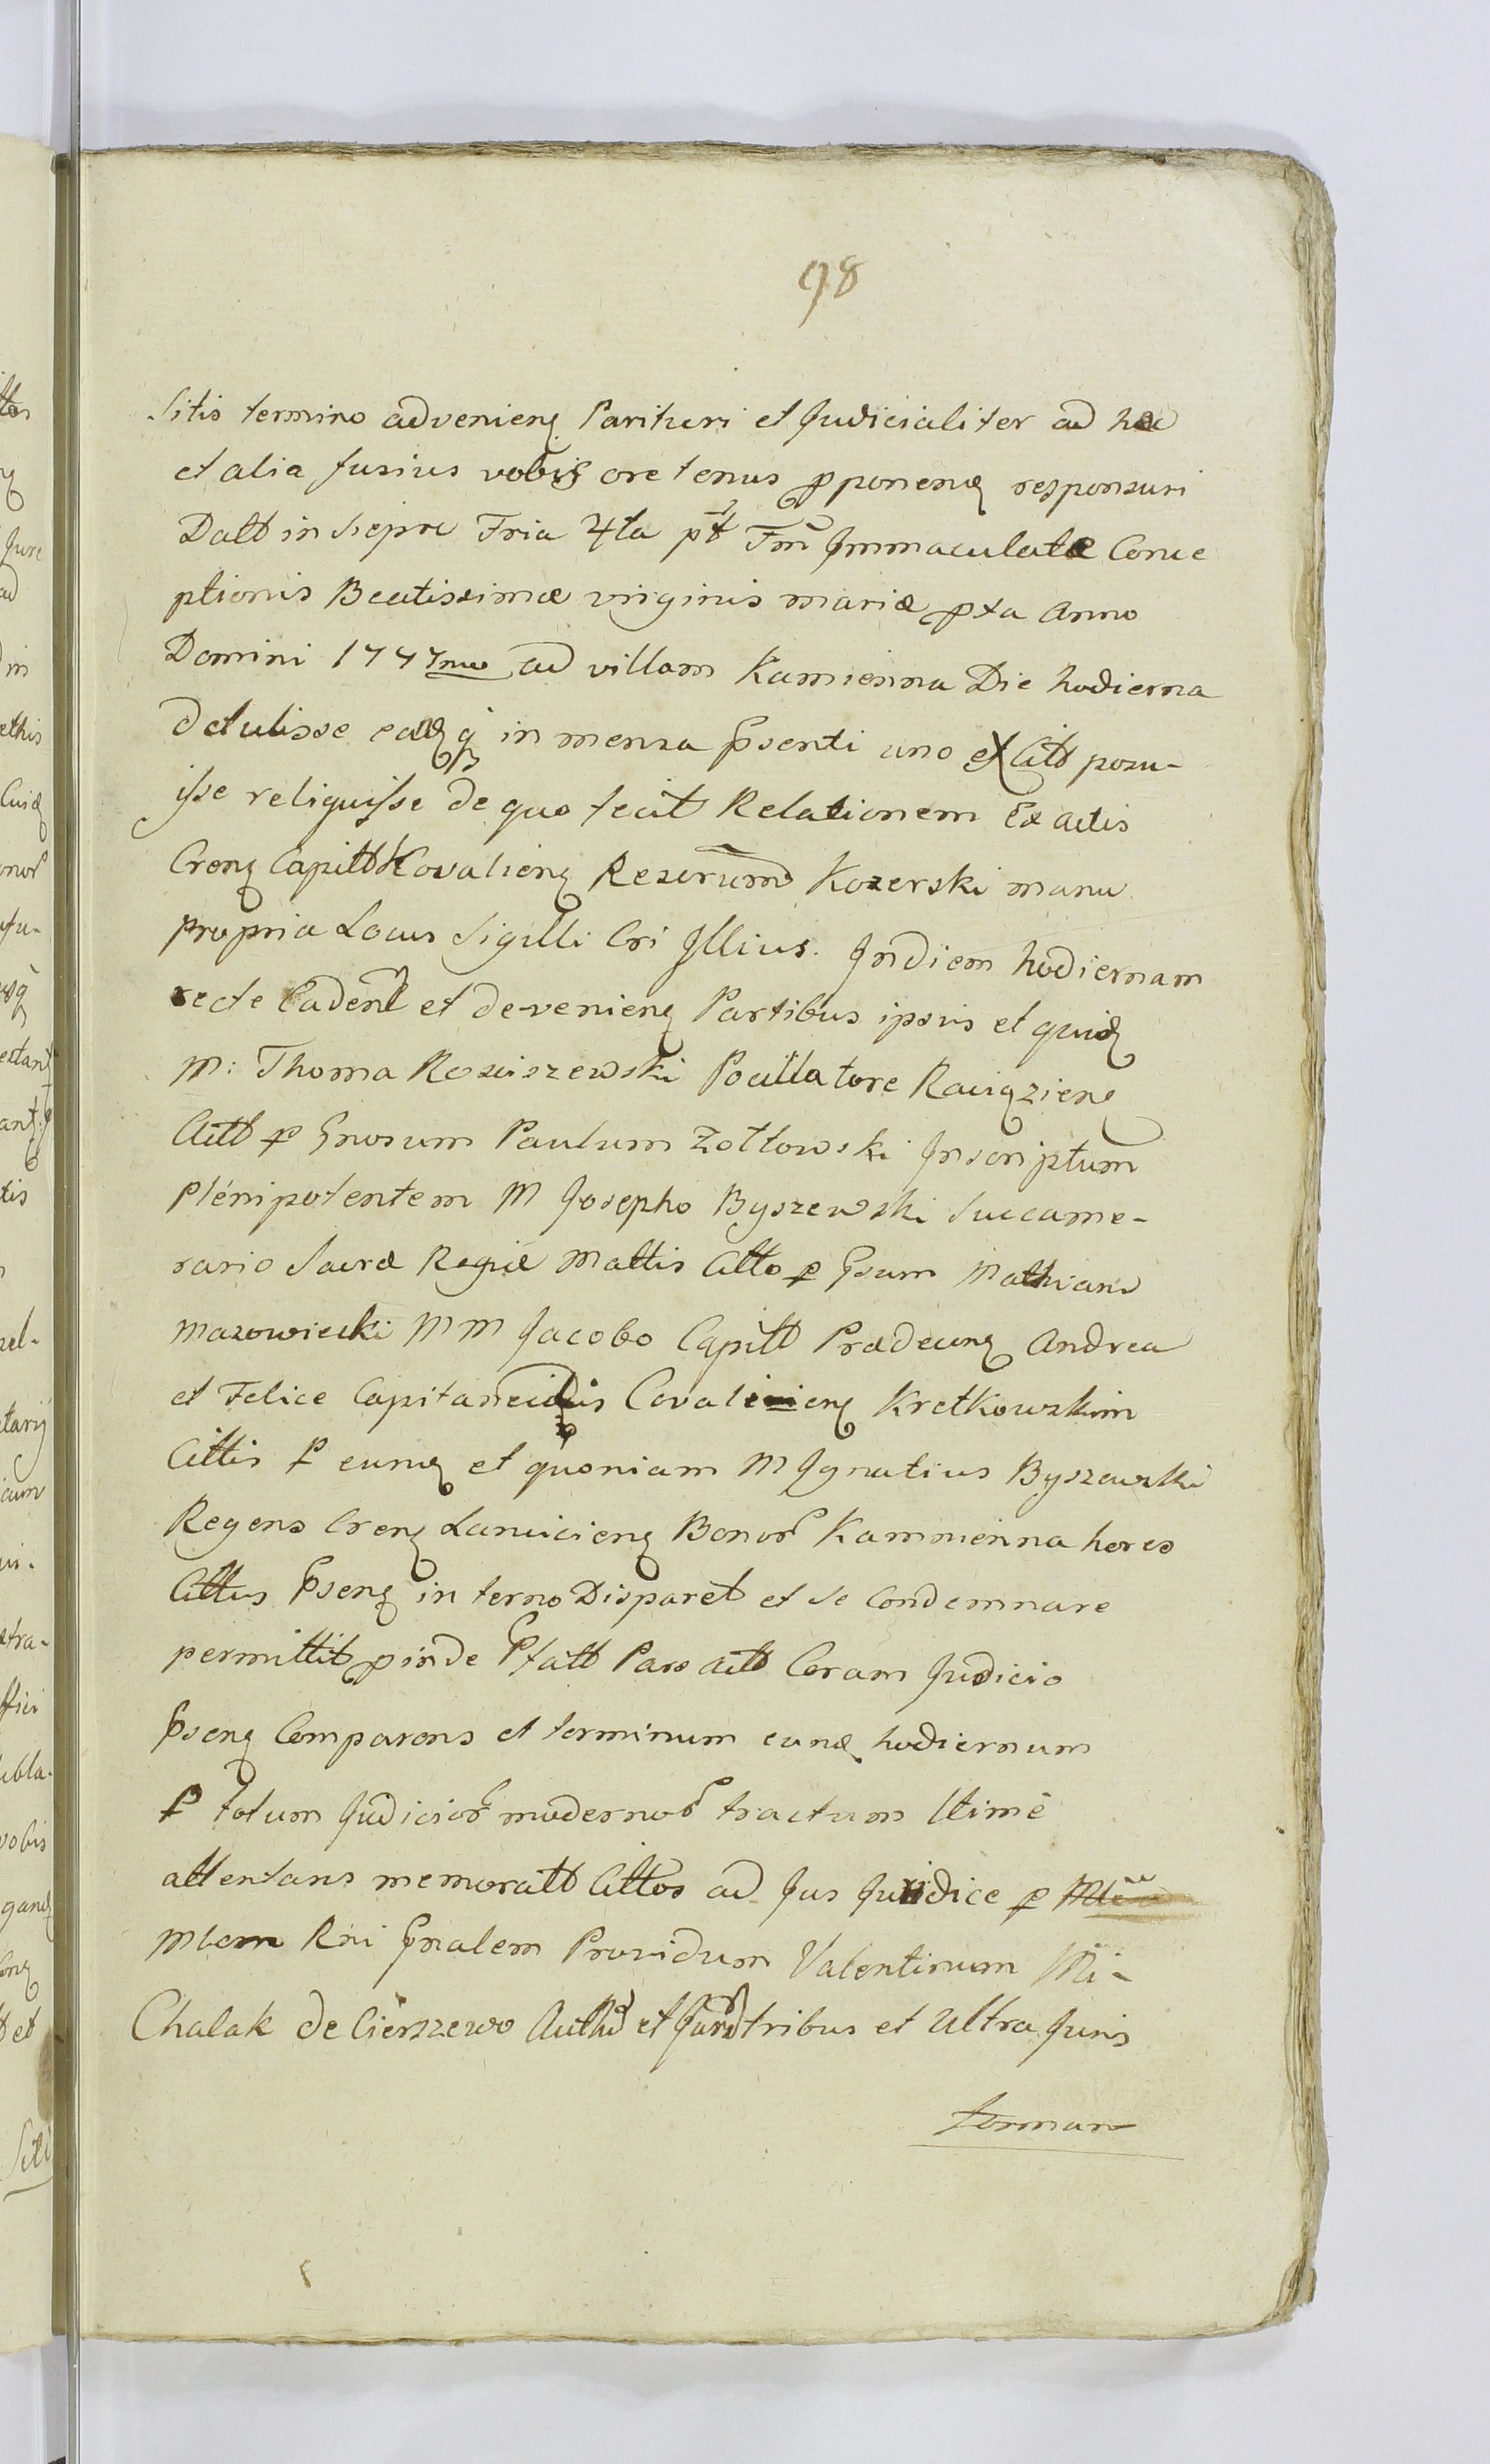 98
sitis termino advenienꝫ Parituri et Judicialiter ad hæc
et alia fusius vobis ore tenus pponenꝫ responsuri
Datt in Siepre Fria 4ta pt Fm Immaculatæ Conce
ptionis Beatissimæ virginis mariæ pxa Anno
Domini 1747mo ad villam Kamienna Die hodierna
detulisse easꝫ q in mensa psenti uno ex Citt posu-
isse reliquisse de quo fecit Relationem Ex actis
Crenꝫ Capitt Kovalienꝫ Rescrum Kozerski manu
propria Locus Sigilli Cri Illius. In diem hodiernam
recte Cadent et devenienꝫ Partibus ipsis et quidꝫ
M: Thoma Rosciszewski Pocillatore Raciązienꝫ
Actt p Gnosum Paulum Zołtowski Inscriptum
Plenipotentem M Josepho Byszewski Succame-
rario Sacræ Regiæ Mattis Citto p Gsum Mathiam
Mazowiecki MM Jacobo Capitt Prædecenꝫ Andrea
et Felice Capitaneidis Covalinienꝫ Kretkowskim
Cittis P eunꝫ et quoniam M Ignatius Byszewski
Regens Crenꝫ Lanciciensꝫ Bonor Kammienna heres
Cittus Psenꝫ in terno Disparet et se Condemnare
permittit pinde Pfatt Pars actt Coram Judicio
Psenꝫ Comparens et terminum eunꝫ hodiernum
P totum Judicior modernor tractum ltime
attentans memoratt Cittos ad Jus Juridice p
Mbem Rni Gnalem Providum Valentinum Mi-
Chalak de Cierszewo Authꝫ et Jurꝫ tribus et ultra Juris
terman